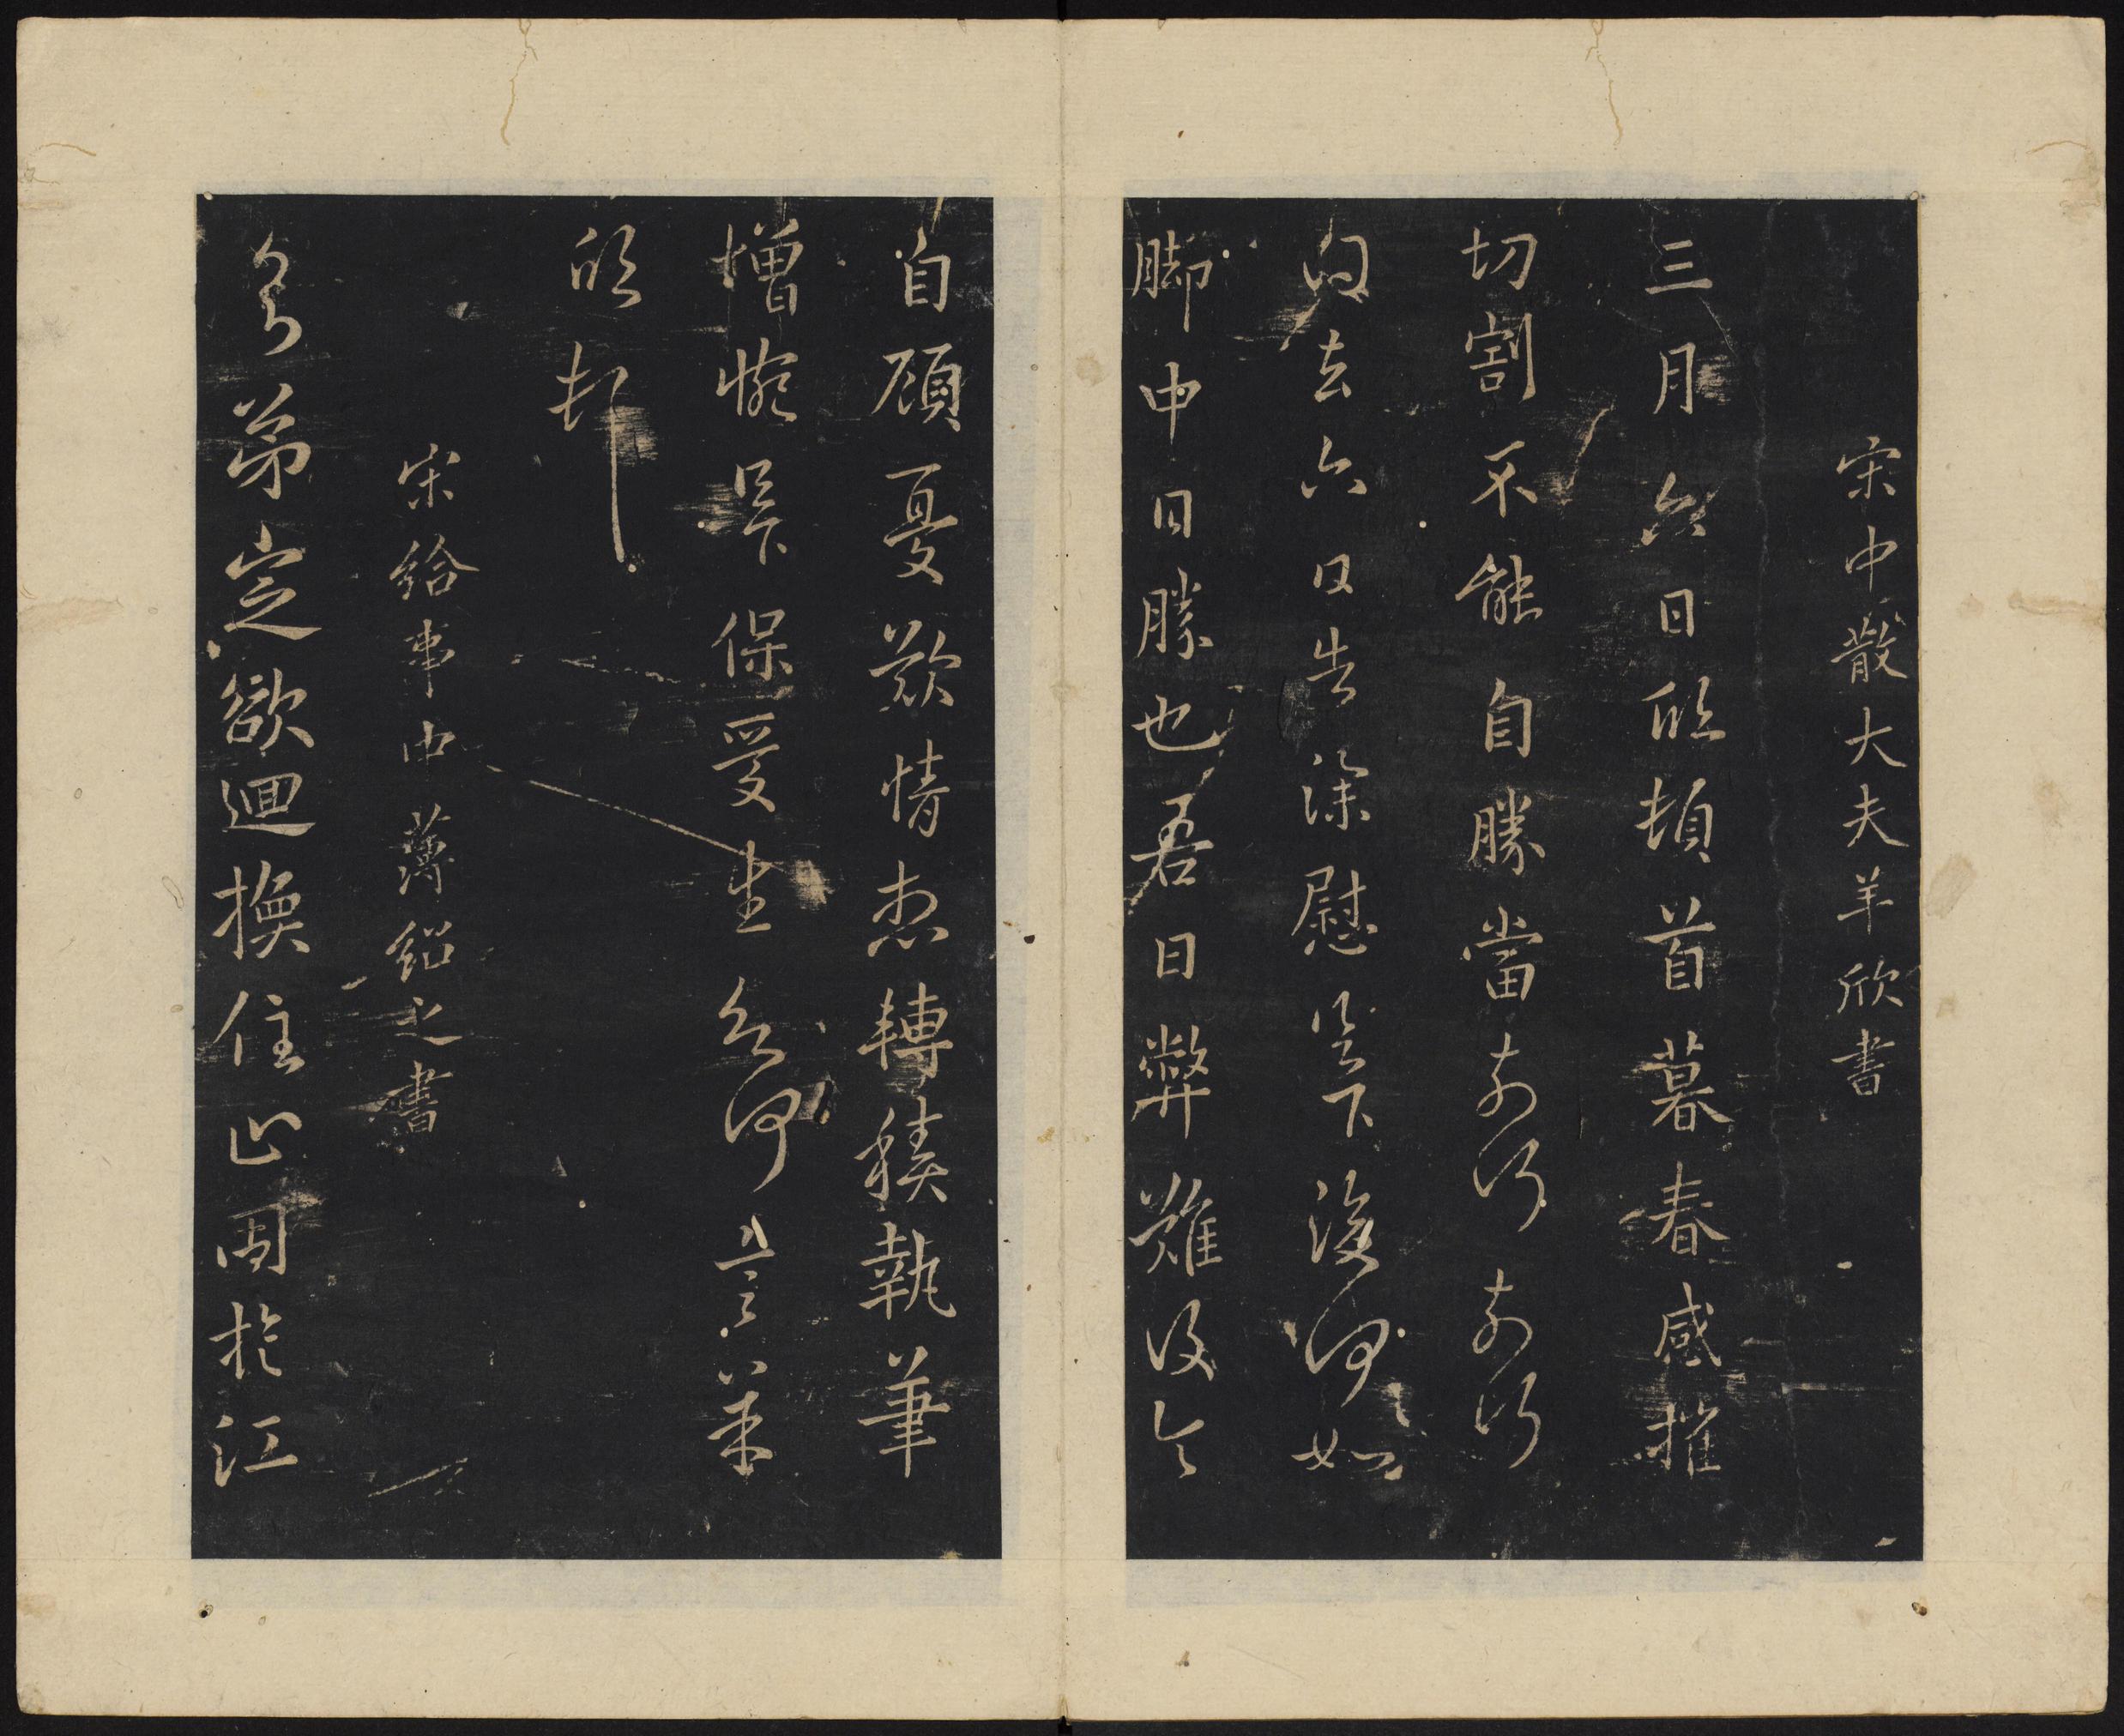 宋中散大夫羊欣書
三月六日欣頓首暮春感摧
切割不能自勝當奈何奈何
得去六日告深慰足下復何如
腳中日勝也吾日弊難復令
自顧憂歎情想轉積執筆
增惋足下保愛書欲何言羊
欣頓
宋給事中薄紹之書
弟定欲迴換住止固於江